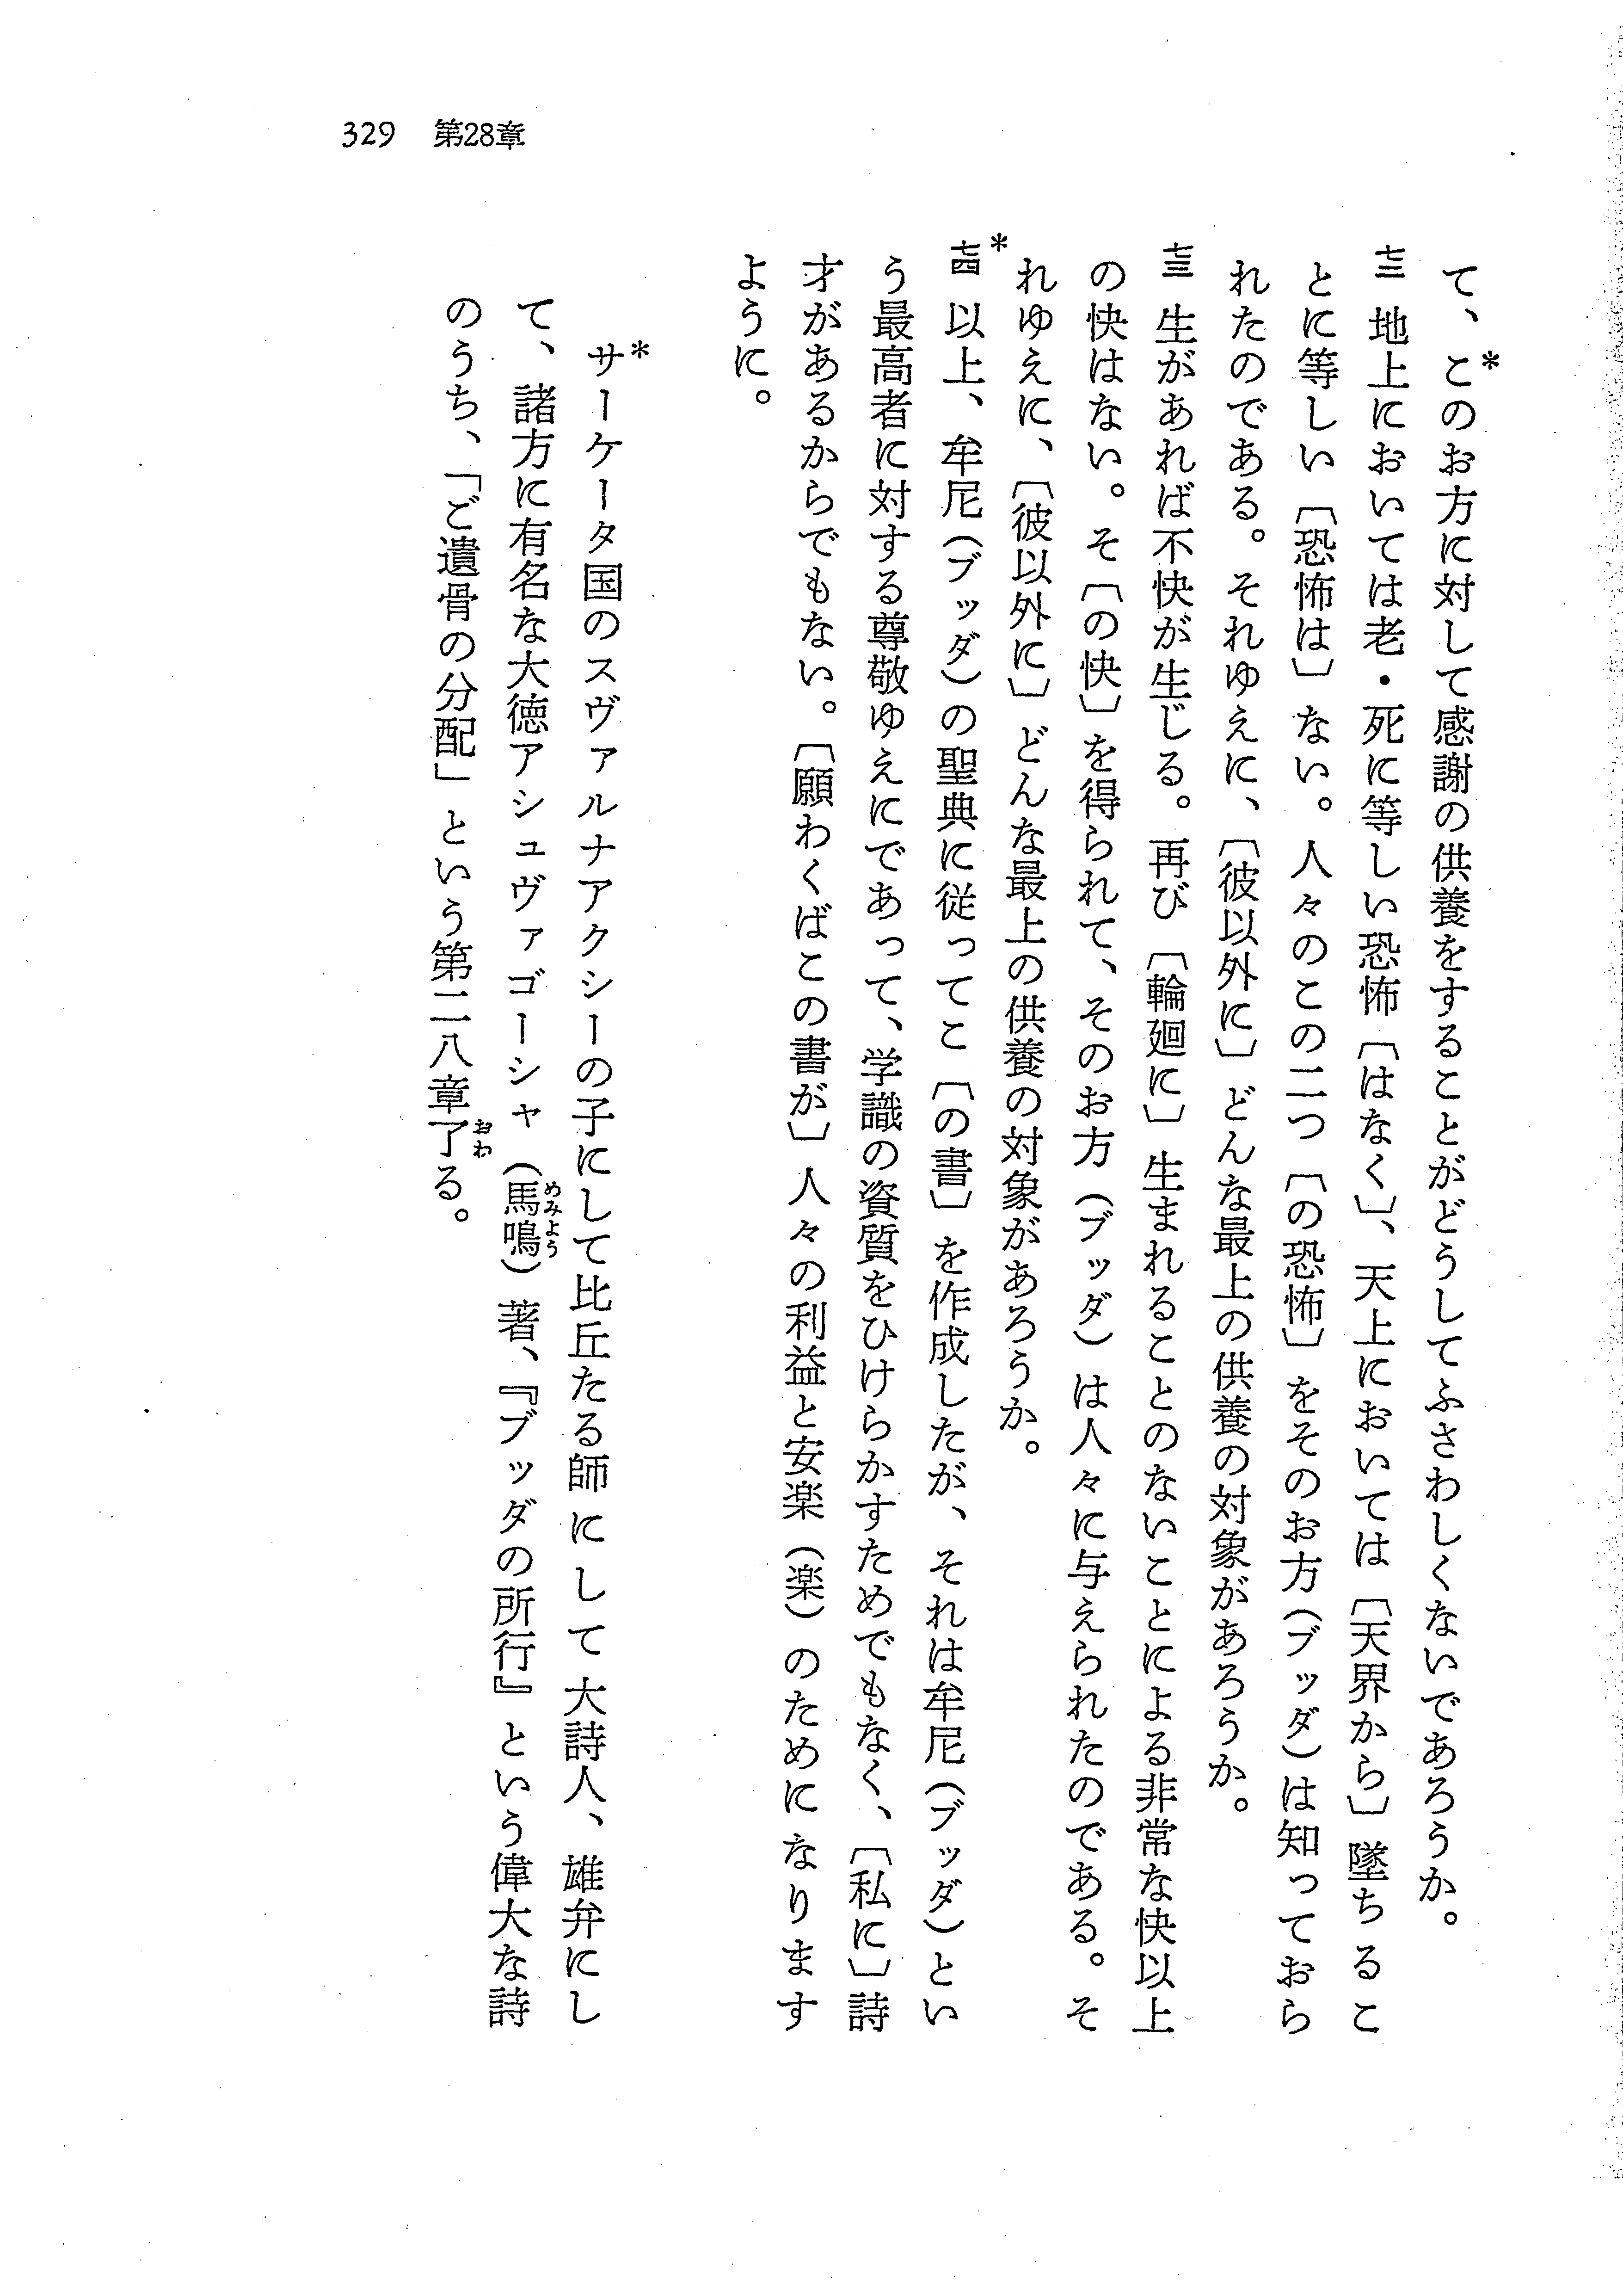 329　第28章
て、*このお方に対して感謝の供養をすることがどうしてふさわしくないであろうか。
七二 地上においては老・死に等しい恐怖〔はなく〕、天上においては〔天界から〕墜ちるこ
とに等しい〔恐怖は〕ない。人々のこの二つ〔の恐怖〕をそのお方（ブッダ）は知っておら
れたのである。それゆえに、〔彼以外に〕どんな最上の供養の対象があろうか。
七三 生があれば不快が生じる。再び〔輪廻に〕生まれることのないことによる非常な快以上
の快はない。そ〔の快〕を得られて、そのお方（ブッダ）は人々に与えられたのである。そ
れゆえに、〔彼以外に〕どんな最上の供養の対象があろうか。
*七四 以上、牟尼（ブッダ）の聖典に従ってこ〔の書〕を作成したが、それは牟尼（ブッダ）とい
う最高者に対する尊敬ゆえにであって、学識の資質をひけらかすためでもなく、〔私に〕詩
才があるからでもない。〔願わくばこの書が〕人々の利益と安楽（楽）のためになります
ように。
*サーケータ国のスヴァルナアクシーの子にして比丘たる師にして大詩人、雄弁にし
て、諸方に有名な大徳アシュヴァゴーシャ（馬鳴めみよう）著、『ブッダの所行』という偉大な詩
のうち、「ご遺骨の分配」という第二八章了おわる。